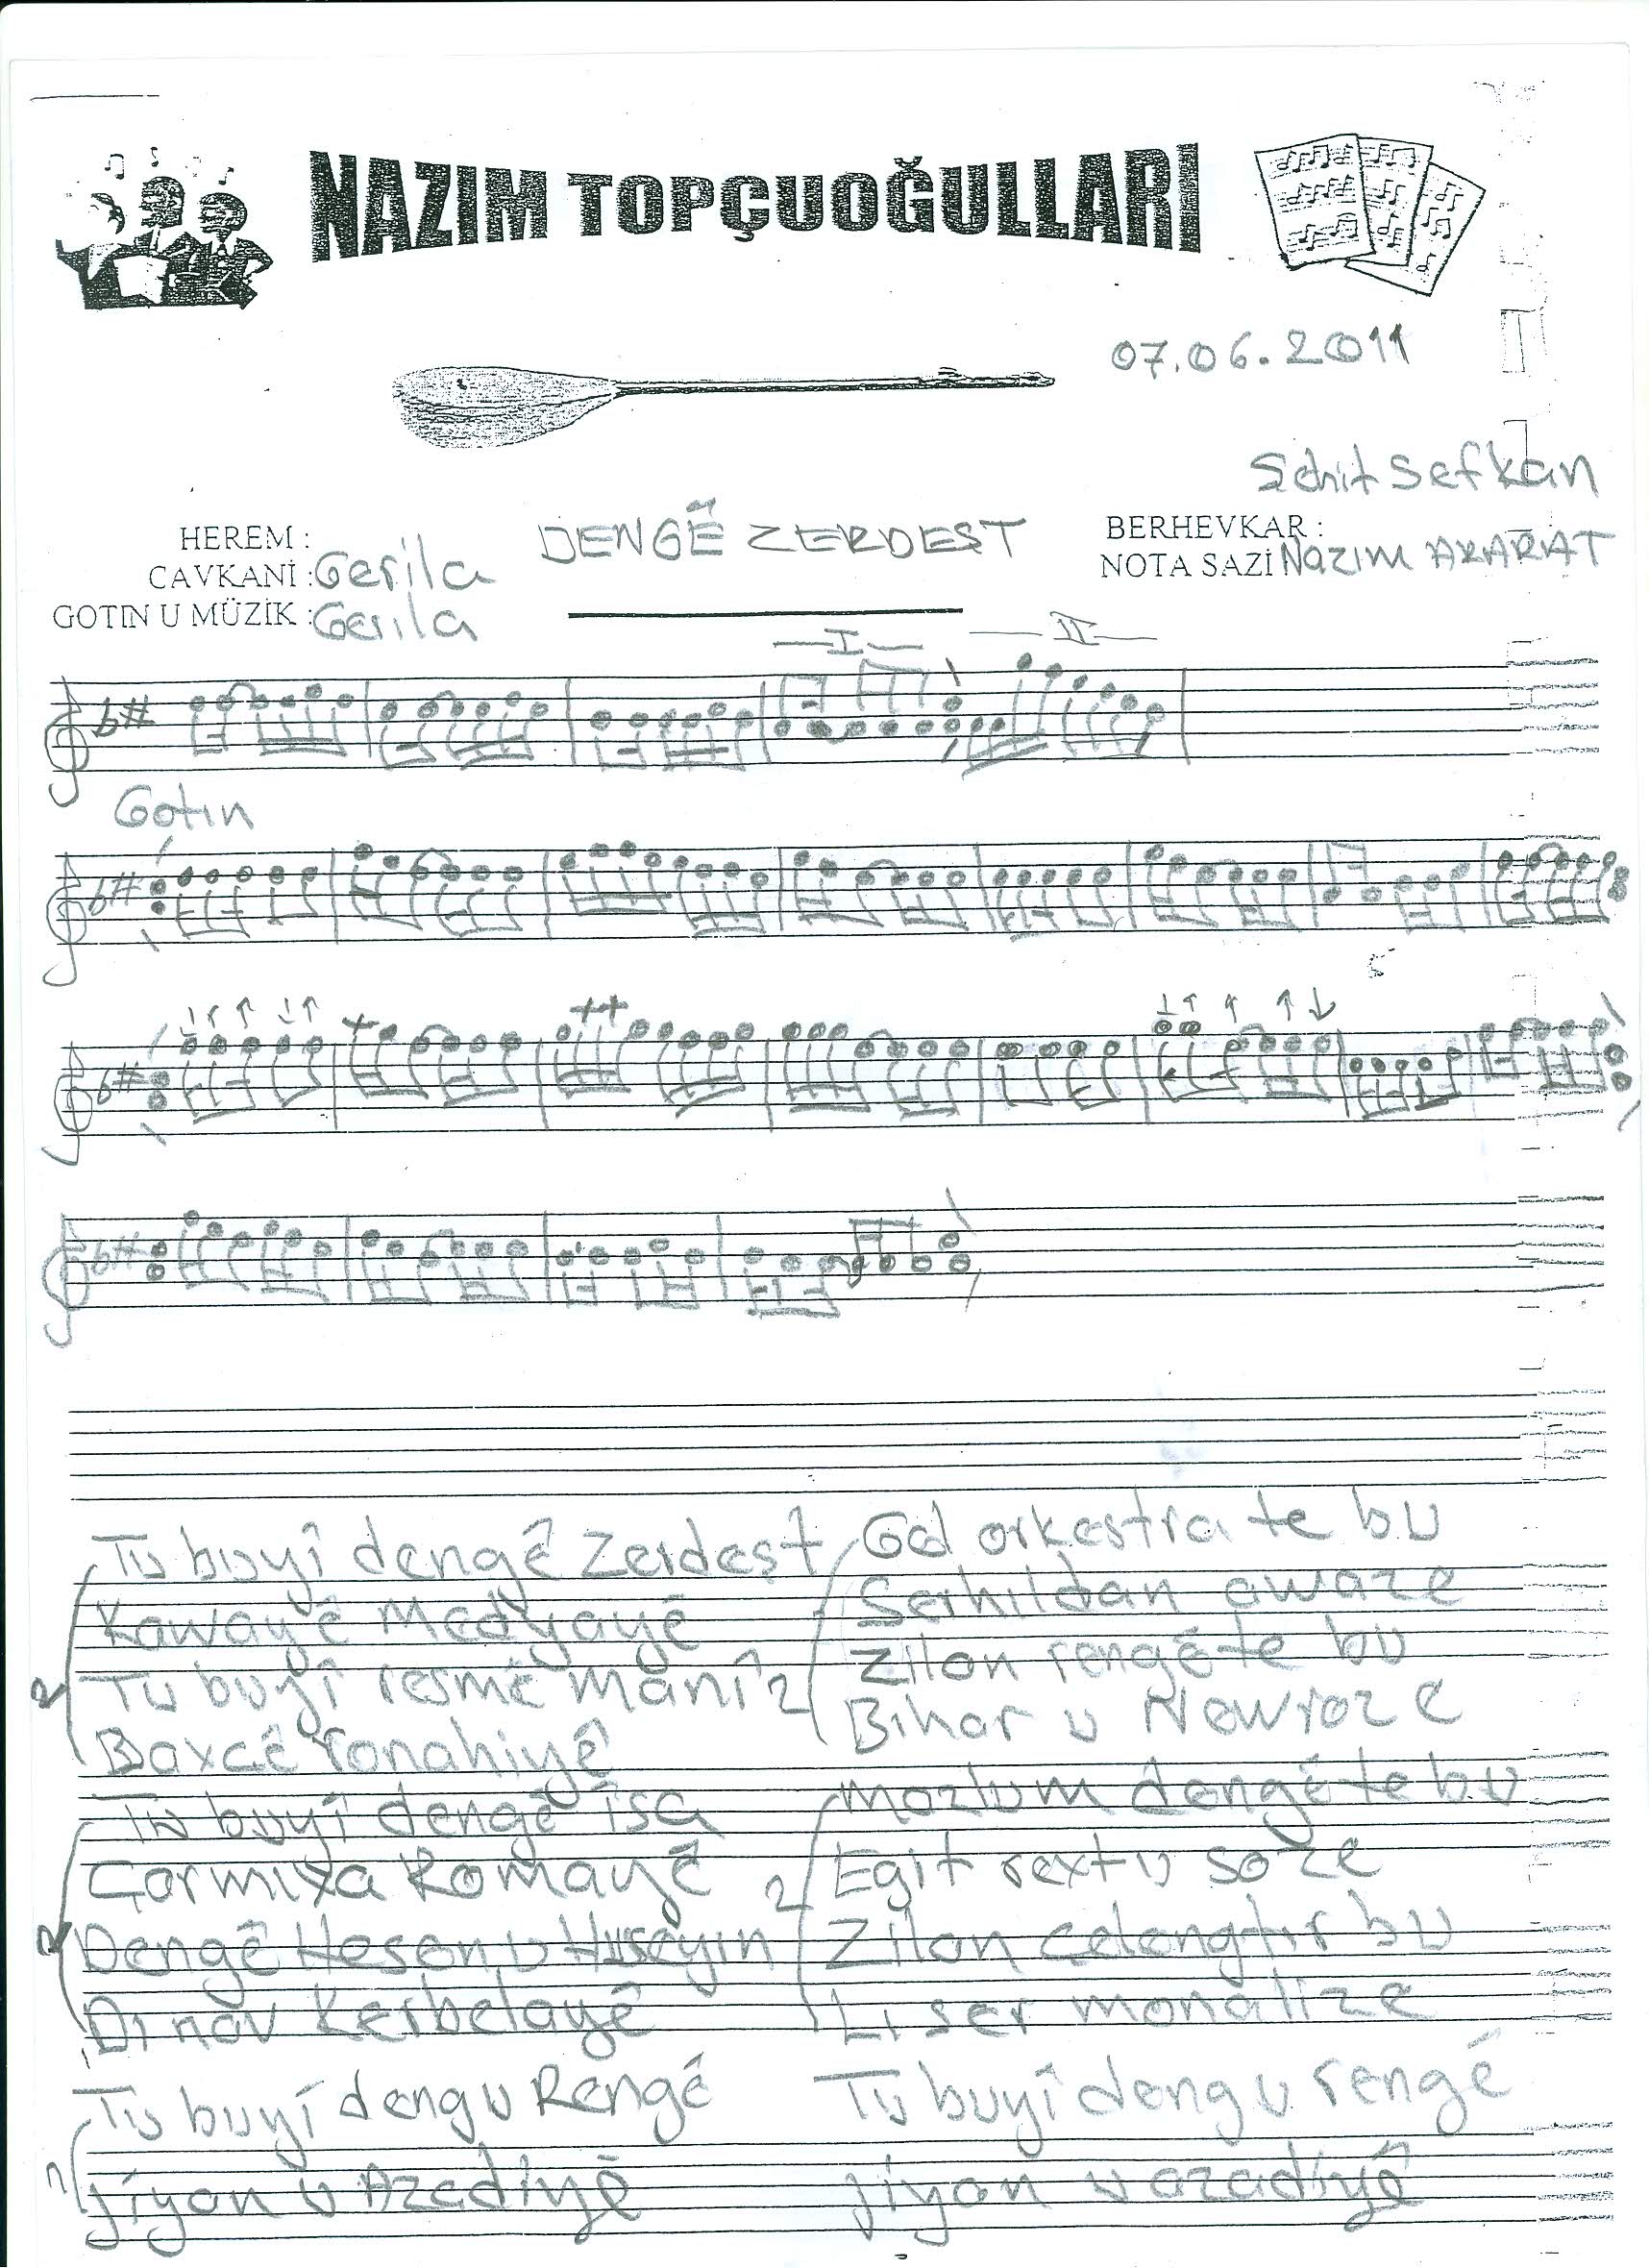 NAZIM TOPÇUOĞULLARI
07.06.2011
Sehit Sefkan
HEREM :
DENGÊ ZERDEST
BERHEVKAR :
CAVKANİ : Gerila
NOTA SAZİ Nazım ARARAT
GOTIN U MÜZİK : Gerila
I
II
Gotın
Tu buyî dengê Zerdeşt
Kawayê Medyayê
Tu buyî resmê Manî
2
Baxcê ronahiyê
Tu buyî dengê İsa
Çarmıxa Romayê
2
Dengê Hesen u Huseyın
Dı nav Kerbelayê
Tu buyî deng u Rengê
2
jiyan u Azadiyê
Gel orkestra te bu
Serhıldan awaze
Zilan rengê te bu
2
Bıhar u Newroze
Mazlum dengê te bu
Egit rext u soze
2
Zilan çelengtır bu
Lı ser monalize
Tu buyî deng u rengê
jiyan u azadiyê